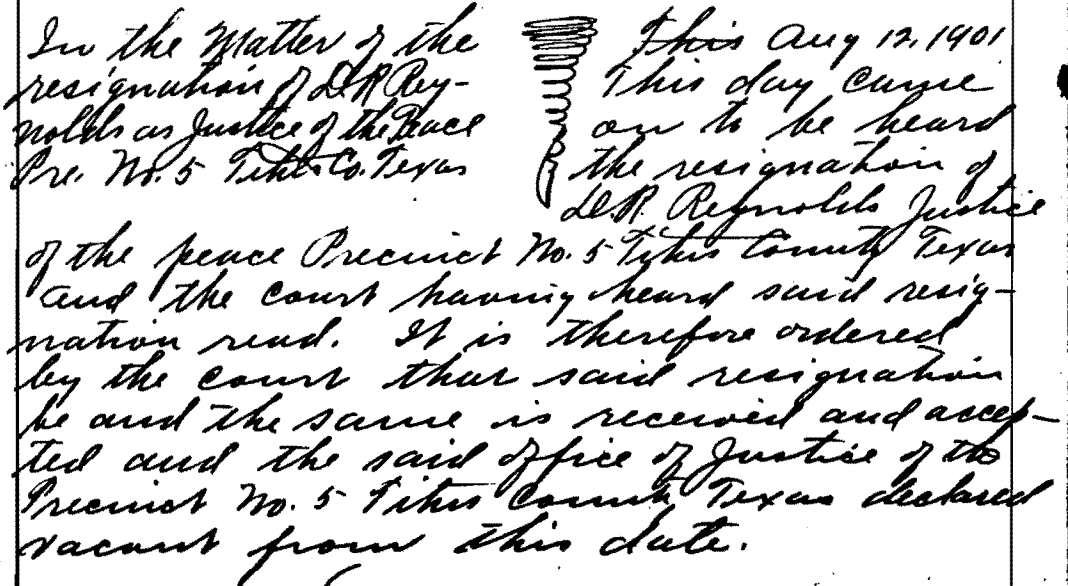 In the Matter of the
resignation of D.R. Rey-
nolds as Justice of the Peace
Pre. No. 5 Titus Co. Texas
This Aug 12, 1901
This day came
on to be heard
the resignation of
D.R. Reynolds Justice
of the peace Precinct No. 5 Titus County Texas
and the court having heard said resig-
nation read. It is therefore ordered
by the court that said resignation
be and the same is received and accep-
ted and the said office of Justice of the
Precinct No. 5 Titus County Texas declared
vacant from this date.